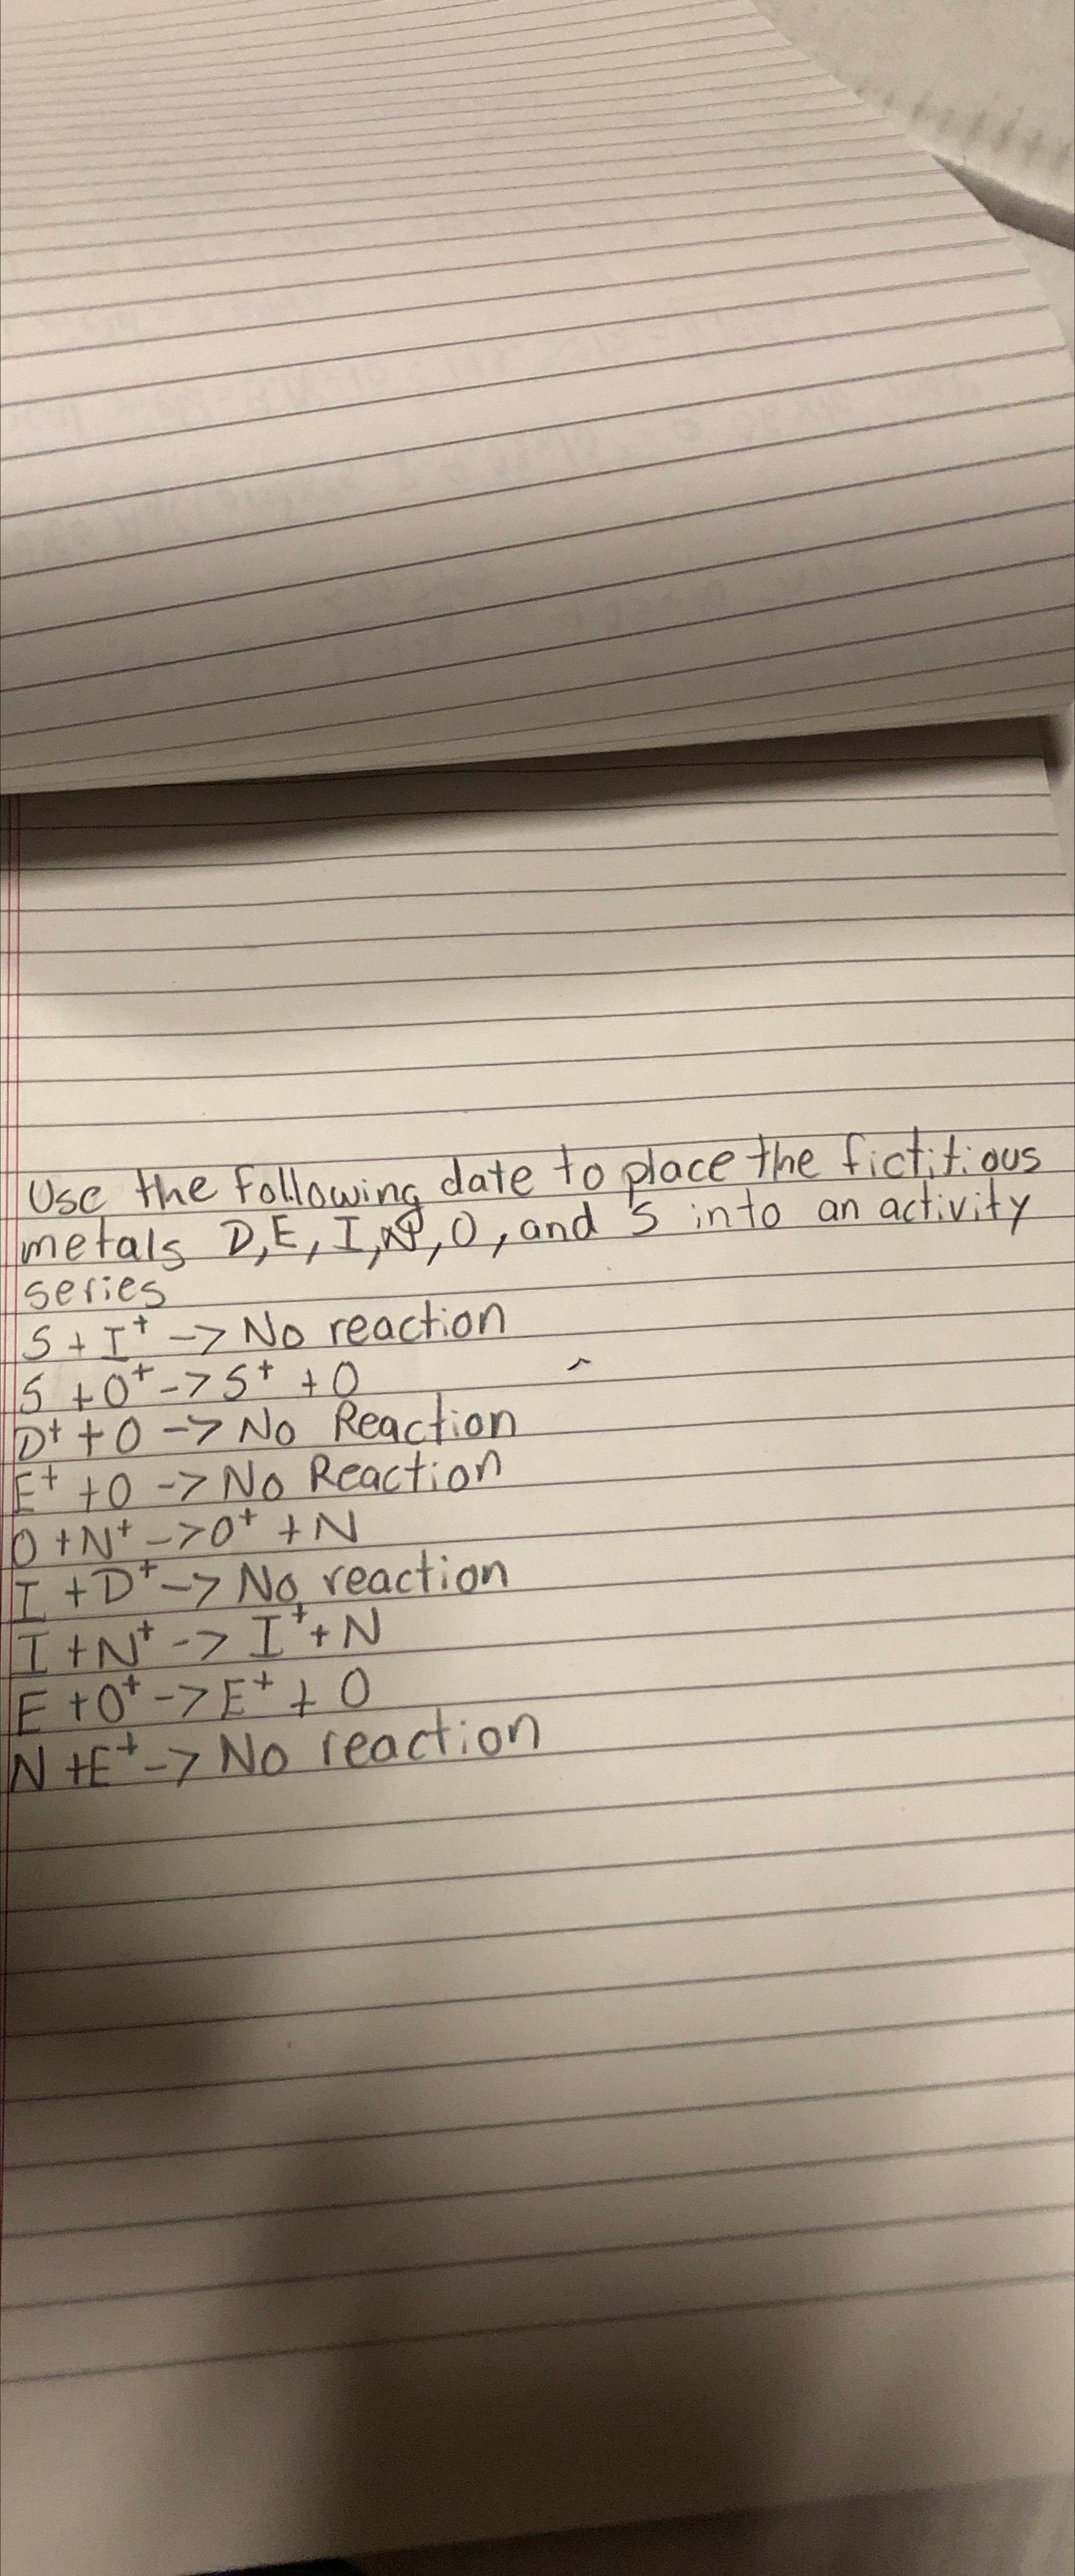 Use the following date to place the fictitious
metals D, E, I, N, O, and S into an activity
series
S + I⁺ -> No reaction
S + O⁺ -> S⁺ + O
D⁺ + O -> No Reaction
E⁺ + O -> No Reaction
O + N⁺ -> O⁺ + N
I + D⁺ -> No reaction
I + N⁺ -> I⁺ + N
E + O⁺ -> E⁺ + O
N + E⁺ -> No reaction